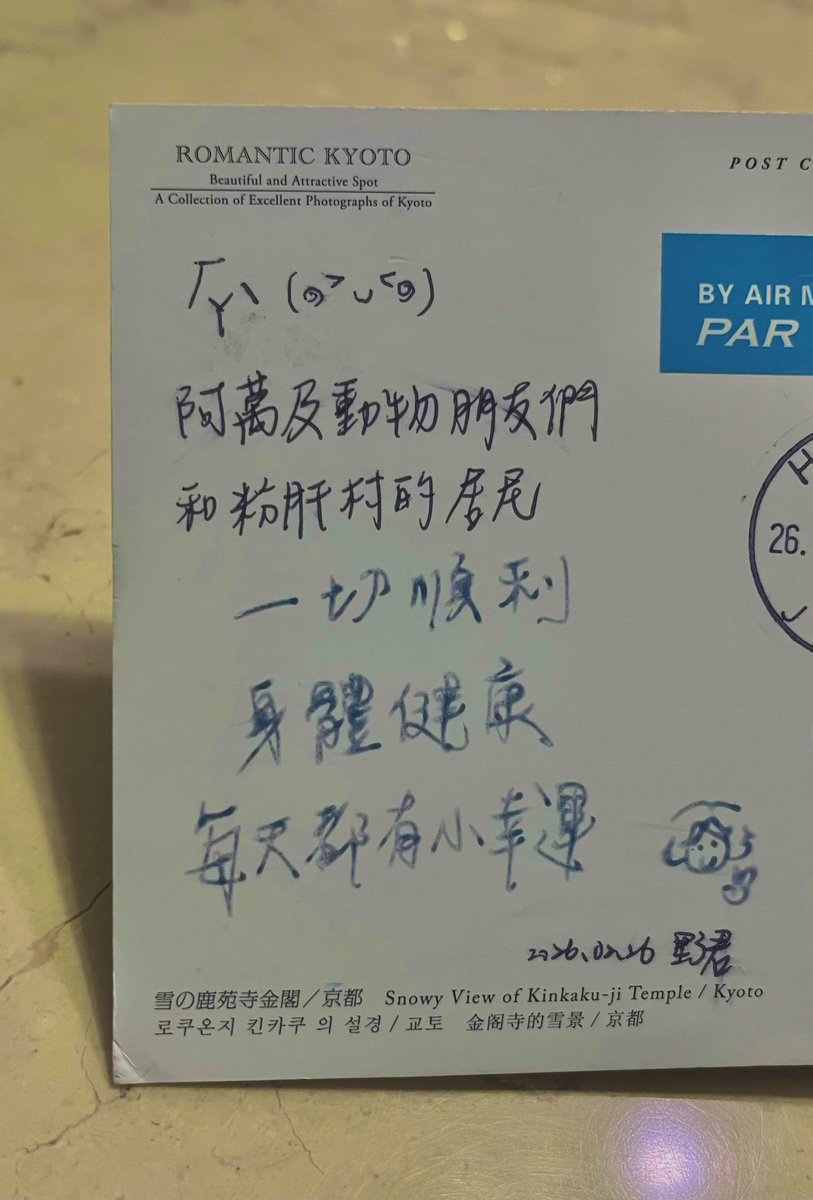 ROMANTIC KYOTO
Beautiful and Attractive Spot
A Collection of Excellent Photographs of Kyoto
POST C
BY AIR M
PAR
阿萬及動物朋友們
和粉肝村的居民
一切順利
身體健康
每天都有小幸運
26.
2026.02.26 野君
雪の鹿苑寺金閣/京都 Snowy View of Kinkaku-ji Temple / Kyoto
로쿠온지 킨카쿠 의 설경 / 교토 金阁寺的雪景 / 京都